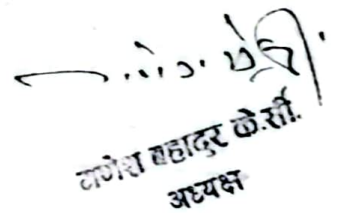 गणेश बहादुर के.सी.
अध्यक्ष